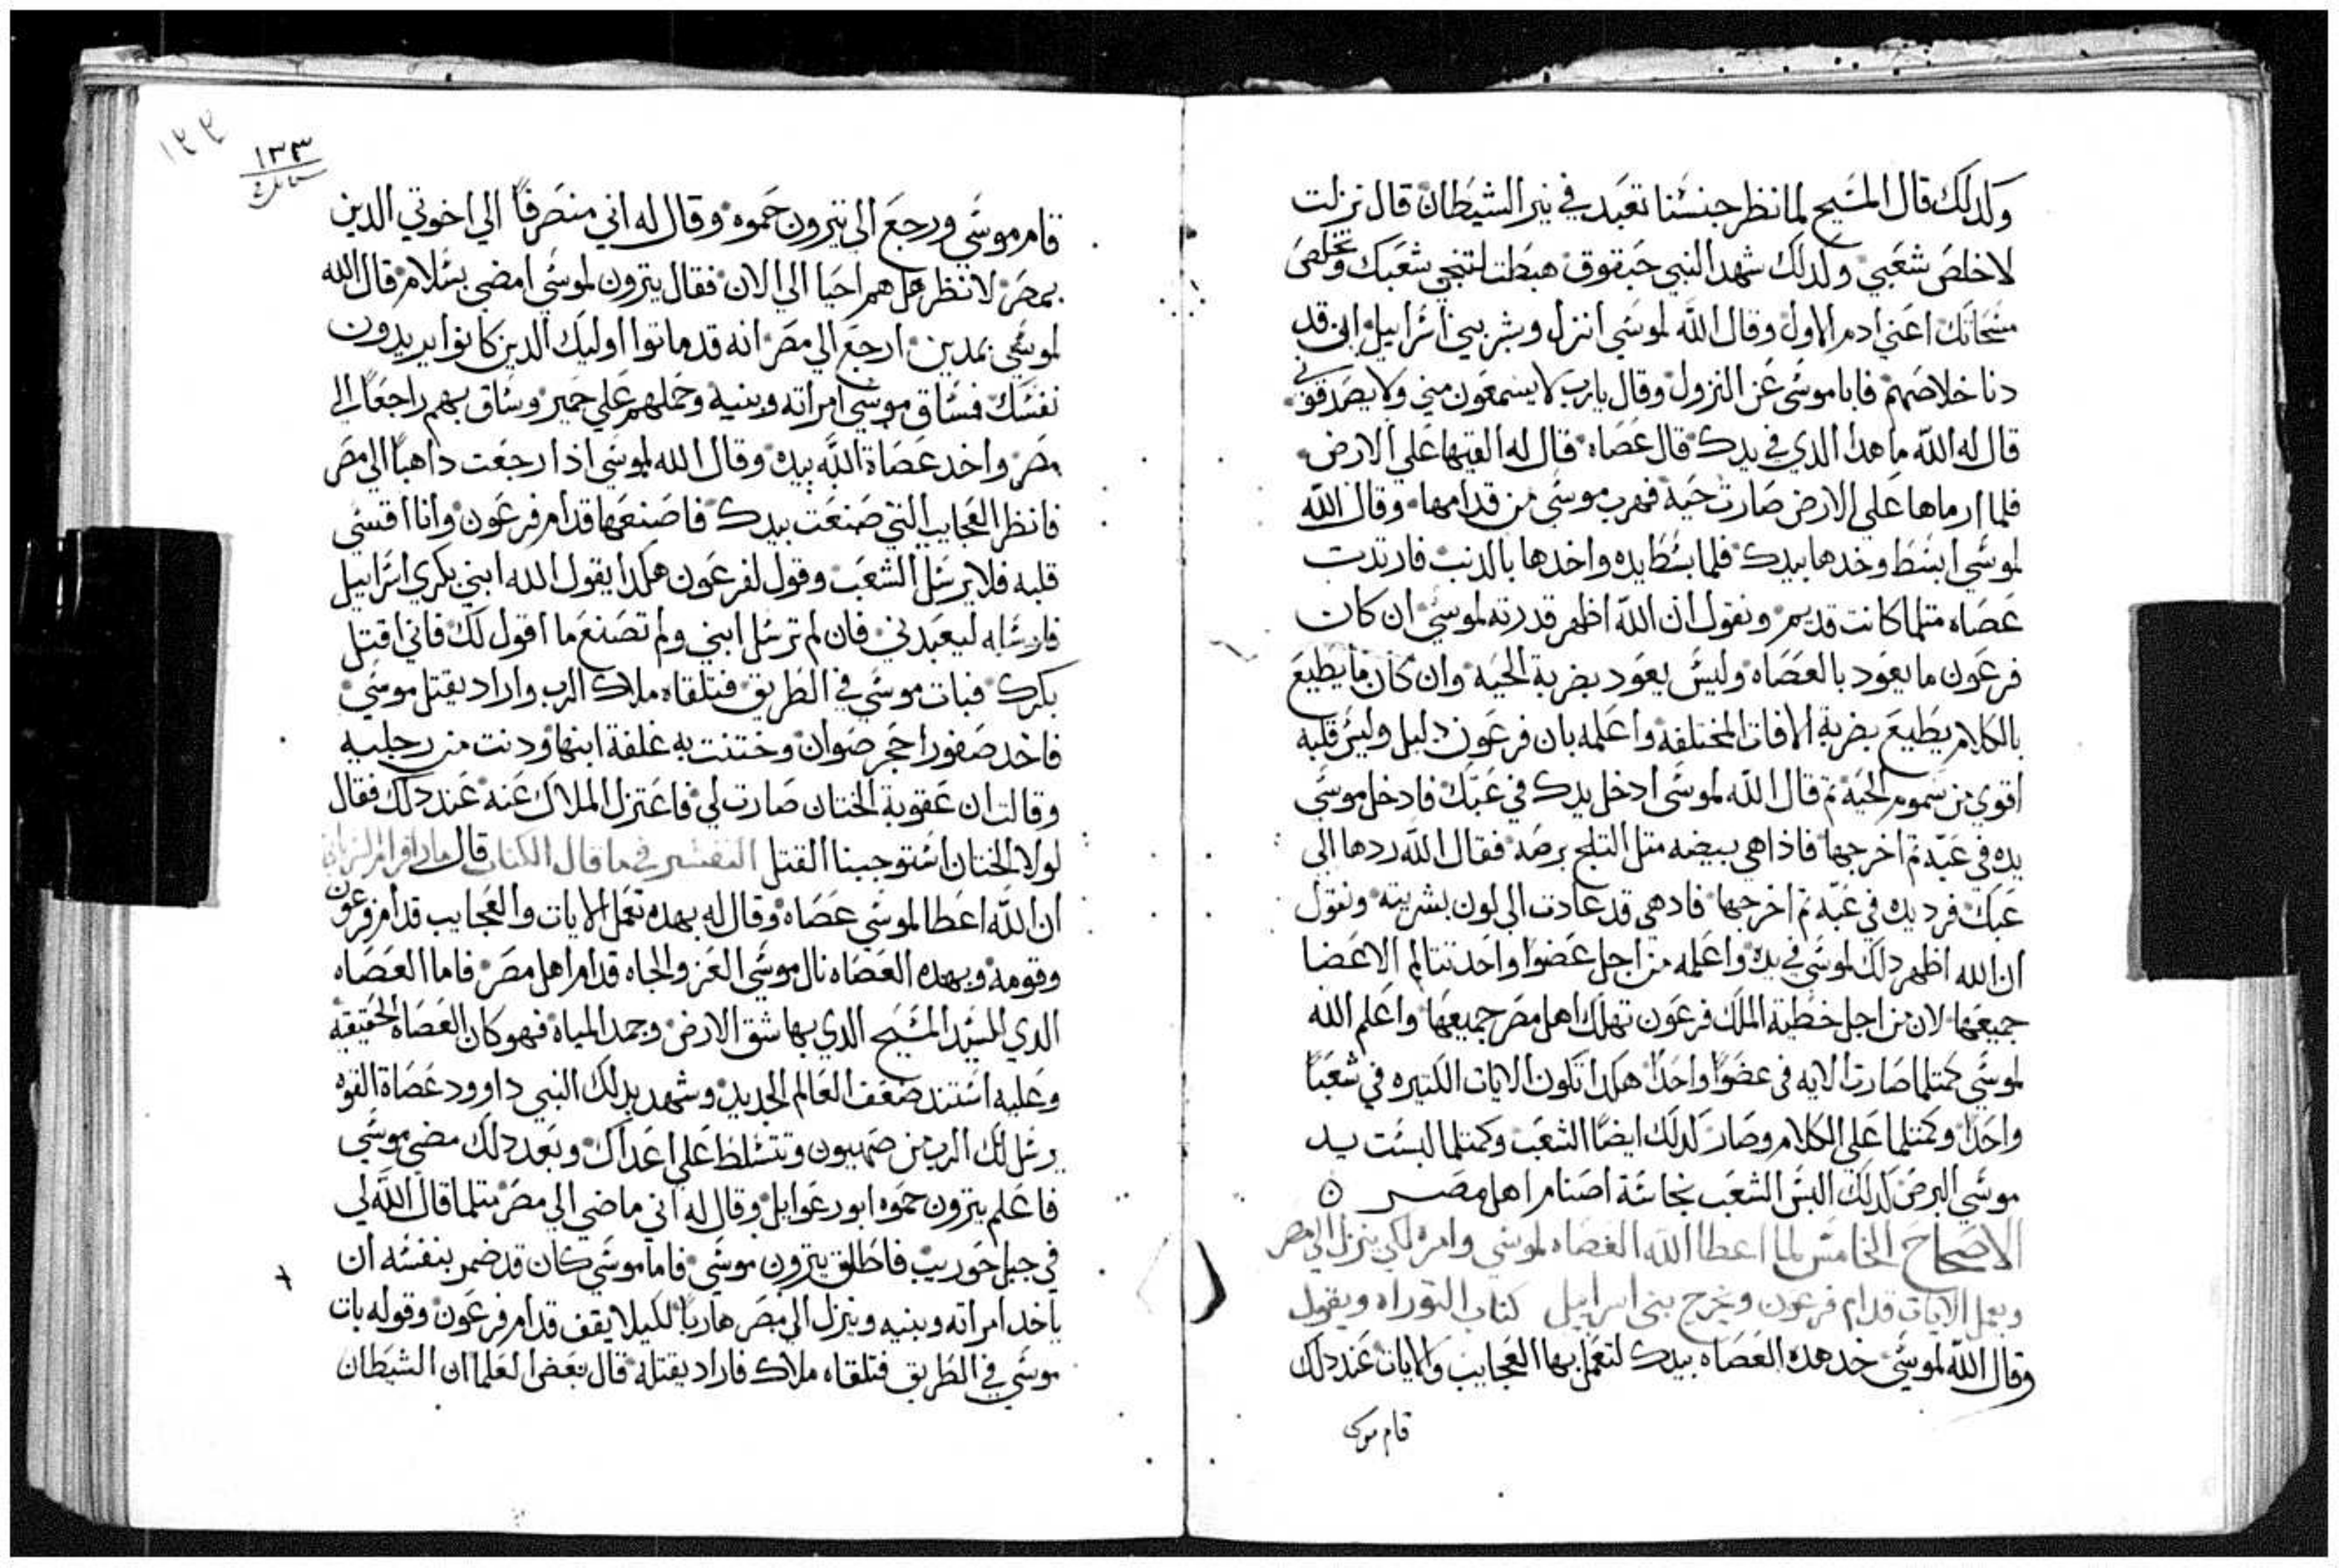 وكدلك قال المسيح لما نظر جنسنا تعبد في نير الشيطان قال نزلت
لاخلص شعبي وكدلك شهد النبي حبقوق هبطت لتنجي شعبك وتخلص
مسحائك اعني ادم الاول وقال الله لموسي انزل وبشر بني اسراييل اني قد
دنا خلاصهم فابا موسي عن النزول وقال يارب لا يسمعون مني ولا يصدقوني
قال له الله ما هدا الدي في يدك قال عصاه قال له القيها علي الارض
فلما ارماها علي الارض صارت حيه فهرب موسي من قدامها وقال الله
لموسي ابسط وخدها بيدك فلما بسط يده واخدها بالدنب فارتدت
عصاه متلما كانت قديم ونقول ان الله اظهر قدرته لموسي ان كان
فرعون ما يعود بالعصاه وليس يعود بضربة الحيه وان كان ما يطيع
بالكلام يطيع بضربة الافات المختلفه واعلمه بان فرعون دليل وليس قلبه
اقوي من سموم الحيه تم قال الله لموسي ادخل يدك في عبك فادخل موسي
يده في عبه تم اخرجها فاذا هي بيضه متل التلج برصه فقال الله ردها الي
عبك فرد يده في عبه تم اخرجها فادهي قد عادت الي لون بشريته ونقول
ان الله اظهر دلك لموسي في يده واعلمه من اجل عضوا واحد تتالم الاعضا
جميعها لان من اجل خطية الملك فرعون تهلك اهل مصر جميعها واعلم الله
لموسي كمتلما صارت الايه في عضوا واحدا هكدا تكون الايات الكتيره في شعبا
واحدا وكمتلما علي الكلام وصار كدلك ايضا الشعب وكمتلما لبست يد
موسي البرص كدلك البس الشعب نجاسة اصنام اهل مصر ن
الاصحاح الخامس لما اعطا الله العصاه لموسي وامره لكي ينزل الي مصر
ويعمل الايات قدام فرعون ويخرج بني اسراييل كتاب التوراه ويقول
وقال الله لموسي خد هده العصاه بيدك لتعمل بها العجايب والايات عند دلك
قام موسى
١٣٣
١٣٣
قام موسي ورجع الي يترون حموه وقال له اني منصرفا الي اخوتي الدين
بمصر لانظر هل هم احيا الي الان فقال يترون لموسي امضي بسلام قال الله
لموسي بمدين ارجع الي مصر انه قد ماتوا اوليك الدين كانوا يريدون
نفسك فساق موسي امراته وبنيه وحملهم علي حمير وساق بهم راجعا الي
مصر واخد عصاة الله بيده وقال الله لموسي اذا رجعت داهبا الي مصر
فانظر العجايب التي صنعت بيدك فاصنعها قدام فرعون وانا اقسي
قلبه فلا يرسل الشعب وقول لفرعون هكدا يقول الله ابني بكري اسراييل
فارسله ليعبدني فان لم ترسل ابني ولم تصنع ما اقول لك فاني اقتل
بكرك فبات موسي في الطريق فتلقاه ملاك الرب واراد يقتل موسي
فاخد صفورا حجر صوان وختنت به غلفة ابنها ودنت من رجليه
وقالت ان عقوبة الختان صارت لي فاعتزل الملاك عنه عند دلك فقال
لولا الختان استوجبنا القتل التفسير في ما قال الكتاب قال مار افرام السرياني
ان الله اعطا لموسي عصاه وقال له بهده تعمل الايات والعجايب قدام فرعون
وقومه وبهده العصاه نال موسي العز والجاه قدام اهل مصر فاما العصاه
الدي للسيد المسيح الدي بها شق الارض وجمد المياه فهو كان العصاه الحقيقيه
وعليه استند ضعف العالم الجديد وشهد بدلك النبي داوود عصاة القوه
يرسل لك الرب من صهيون وتتسلط علي اعداك وبعد دلك مضي موسي
فاعلم يترون حموه ابو رعوايل وقال له اني ماضي الي مصر متلما قال الله لي
في جبل حوريب فاطلق يترون موسي فاما موسي كان قد ضمر بنفسه ان
ياخد امراته وبنيه وينزل الي مصر هاربا لكيلا يقف قدام فرعون وقوله بات
موسي في الطريق فتلقاه ملاك فاراد يقتله قال بعض العلما ان الشيطان